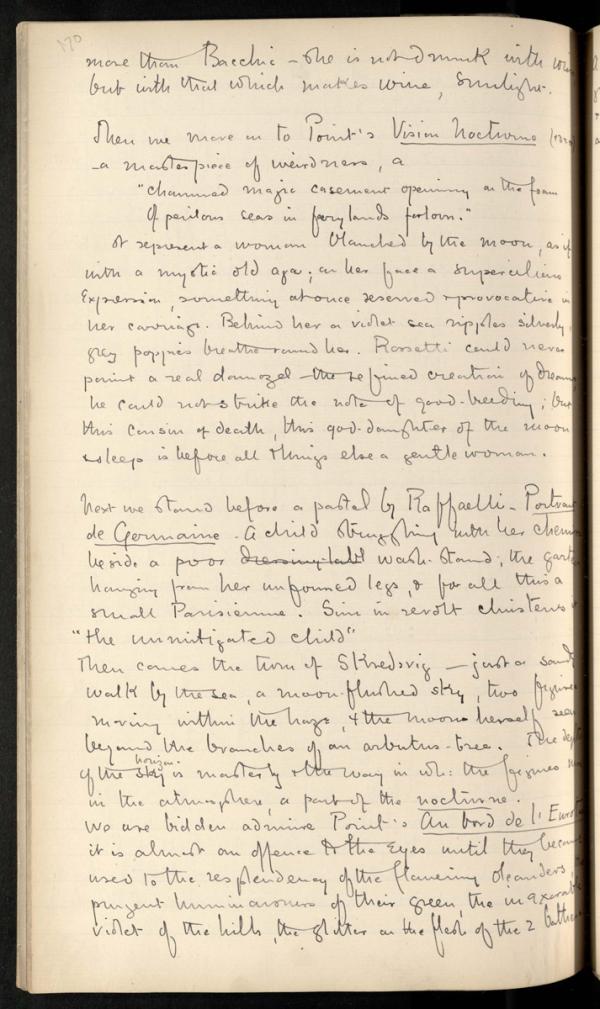 170
more than Bacchic – she is not drunk with wine
but with that which makes wine, Sunlight.
Then we move on to Point's Vision Nocturne
– a masterpiece of weirdness, a
"charmed magic casement opening on the foam
Of perilous seas in faery lands forlorn."
It represents a woman blanched by the moon, as if
with a mystic old age; on her face a supercilious
Expression, something at once reserved & provocative in
her carriage. Behind her a violet sea ripples silverly,
grey poppies breathe round her. Rossetti could never
paint a real damozel – the refined creation of dreams
he could not strike the note of good-breeding; but
this cousin of death, this god-daughter of the moon
asleep is before all things else a gentlewoman.
Next we stand before a pastel by Raffaelli – Portrait
de Germaine. A child struggling with her chemise
beside a poor dressing-table wash-stand; the garter
hanging from her unformed legs, & for all this a
small Parisienne. Sim in revolt christens it
"the unmitigated child"
Then comes the turn of Skredsvig – just a sandy
walk by the sea, a moon-flushed sky, two figures
moving within the haze, & the moon herself seen
beyond the branches of an arbutus-tree. The depth
horizon
of the sky is masterly & the way in wh: the figures
in the atmosphere, a part of the nocturne.
We are bidden admire Point's Au bord de l'Eurotas
it is almost an offence to the Eyes until they become
used to the resplendency of the flowering oleanders, the
pungent luminousness of their green, the inexorable
violet of the hills, the glitter on the flesh of the 2 bathers